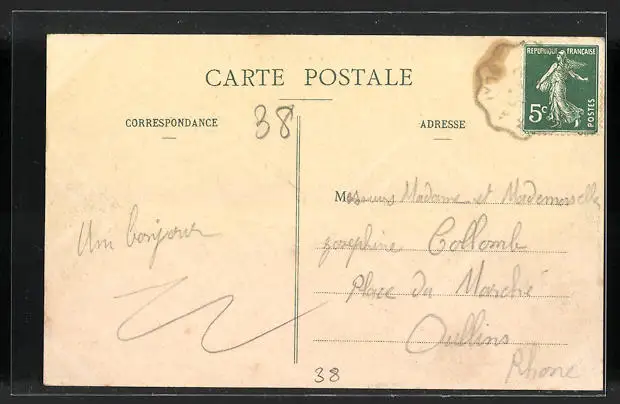 CARTE POSTALE
CORRESPONDANCE
38
ADRESSE
REPUBLIQUE FRANÇAISE
5c
POSTES
Messieurs Madame et Mademoiselle
Joséphine Collomb
Place du Marché
Oullins
Rhone
Un bonjour
38